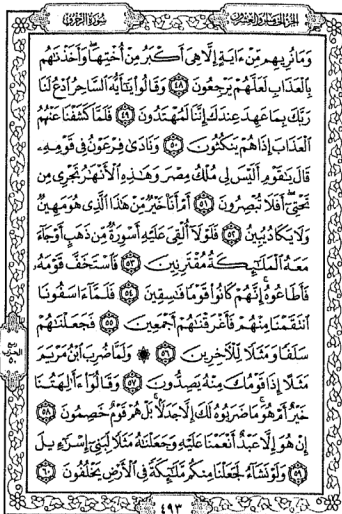 الجزء الخامس والعشرون
سورة الزخرف
وَمَا نُرِيهِم مِّنْ ءَايَةٍ إِلَّا هِىَ أَكْبَرُ مِنْ أُخْتِهَا وَأَخَذْنَٰهُم
بِٱلْعَذَابِ لَعَلَّهُمْ يَرْجِعُونَ ٤٨ وَقَالُوا۟ يَٰٓأَيُّهَ ٱلسَّاحِرُ ٱدْعُ لَنَا
رَبَّكَ بِمَا عَهِدَ عِندَكَ إِنَّنَا لَمُهْتَدُونَ ٤٩ فَلَمَّا كَشَفْنَا عَنْهُمُ
ٱلْعَذَابَ إِذَا هُمْ يَنكُثُونَ ٥٠ وَنَادَىٰ فِرْعَوْنُ فِى قَوْمِهِۦ
قَالَ يَٰقَوْمِ أَلَيْسَ لِى مُلْكُ مِصْرَ وَهَٰذِهِ ٱلْأَنْهَٰرُ تَجْرِى مِن
تَحْتِىٓ أَفَلَا تُبْصِرُونَ ٥١ أَمْ أَنَا۠ خَيْرٌ مِّنْ هَٰذَا ٱلَّذِى هُوَ مَهِينٌ
وَلَا يَكَادُ يُبِينُ ٥٢ فَلَوْلَآ أُلْقِىَ عَلَيْهِ أَسْوِرَةٌ مِّن ذَهَبٍ أَوْ جَآءَ
مَعَهُ ٱلْمَلَٰٓئِكَةُ مُقْتَرِنِينَ ٥٣ فَٱسْتَخَفَّ قَوْمَهُۥ
فَأَطَاعُوهُ إِنَّهُمْ كَانُوا۟ قَوْمًا فَٰسِقِينَ ٥٤ فَلَمَّآ ءَاسَفُونَا
ٱنتَقَمْنَا مِنْهُمْ فَأَغْرَقْنَٰهُمْ أَجْمَعِينَ ٥٥ فَجَعَلْنَٰهُمْ
سَلَفًا وَمَثَلًا لِّلْءَاخِرِينَ ٥٦ ۞ وَلَمَّا ضُرِبَ ٱبْنُ مَرْيَمَ
مَثَلًا إِذَا قَوْمُكَ مِنْهُ يَصِدُّونَ ٥٧ وَقَالُوٓا۟ ءَأَٰلِهَتُنَا
خَيْرٌ أَمْ هُوَ مَا ضَرَبُوهُ لَكَ إِلَّا جَدَلًۢا بَلْ هُمْ قَوْمٌ خَصِمُونَ ٥٨
إِنْ هُوَ إِلَّا عَبْدٌ أَنْعَمْنَا عَلَيْهِ وَجَعَلْنَٰهُ مَثَلًا لِّبَنِىٓ إِسْرَٰٓءِيلَ
٥٩ وَلَوْ نَشَآءُ لَجَعَلْنَا مِنكُم مَّلَٰٓئِكَةً فِى ٱلْأَرْضِ يَخْلُفُونَ ٦٠
٤٩٣